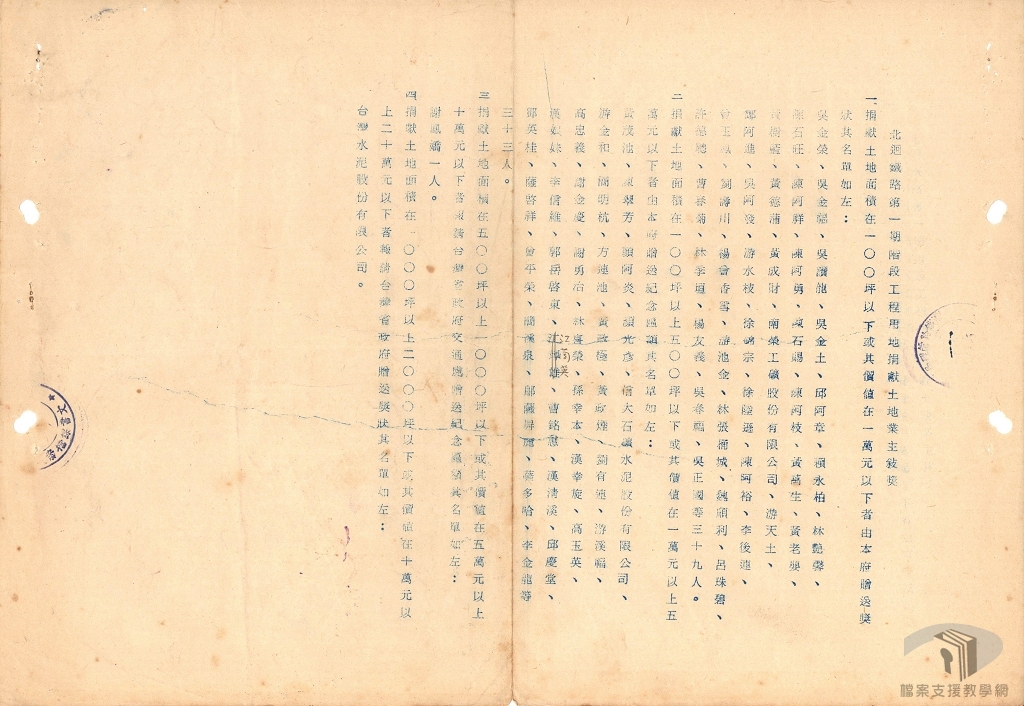 北迴鐵路第一期階段工程用地捐獻土地業主被獎
一、捐獻土地面積在一〇〇坪以下或其價值在一萬元以下者由本府贈送獎
狀其名單如左：
吳金榮、吳金福、吳瀨龍、吳金土、邱阿章、賴永柏、林艷馨、
石旺、陳阿祥、陳阿勇、陳石賜、陳阿枝、黃萬生、黃老嬰、
黃德蒲、黃成財、南榮工礦股份有限公司、游天土、
阿進、吳阿發、游水枝、徐錦宗、徐陸遜、陳阿裕、李後連、
玉、劉壽川、楊曾杏雪、游池金、林張桶城、魏順利、呂珠碧、
許德聰、曹春菊、林李道、楊友義、吳春福、吳正國等三十九人。
二、捐獻土地面積在一〇〇坪以上五〇〇坪以下或其價值在一萬元以上五
萬元以下者由本府贈送紀念匾額其名單如左：
黃茂池、陳翠芳、顏阿炎、顏光彥、信大石礦水泥股份有限公司、
游金和、簡明統、方連池、黃政極、黃政煙、劉有連、游溪福、
高忠義、謝金慶、謝勇冶、林富榮、孫幸本、漢幸旋、高玉英、
漢如妹、李信雄、郭岳啓東、江雄、曹銘惠、漢清溪、邱慶堂、
江
鄧英桂、薩啓祥、曾平榮、簡溪泉、鄺薩、葉多哈、李金龍等
三十三人。
三、捐獻土地面積在五〇〇坪以上一〇〇〇坪以下或其價值在五萬元以上
十萬元以下者報請台灣省政府交通處贈送紀念匾額其名單如左：
謝鳳嬌一人。
四、捐獻土地面積在一〇〇〇坪以上二〇〇〇坪以下或其價值在十萬元以
上二十萬元以下者報請台灣省政府贈送獎狀其名單如左：
台灣水泥股份有限公司。
檔案支援教學網